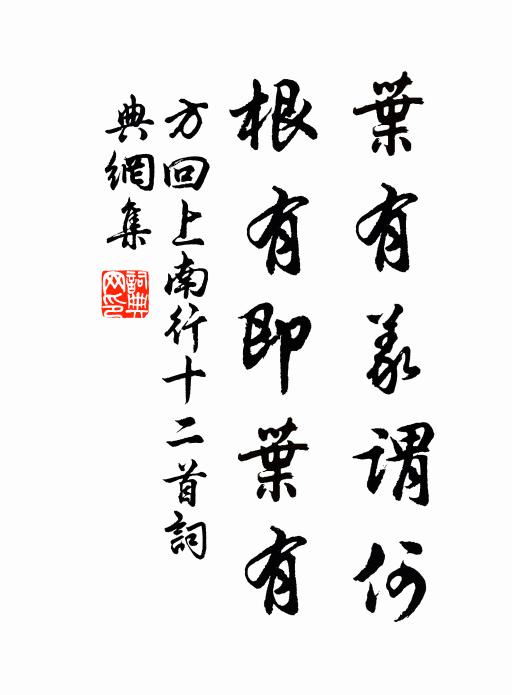 葉有義謂何
根有即葉有
方回上南行十二首詞
典網集
詞典網印